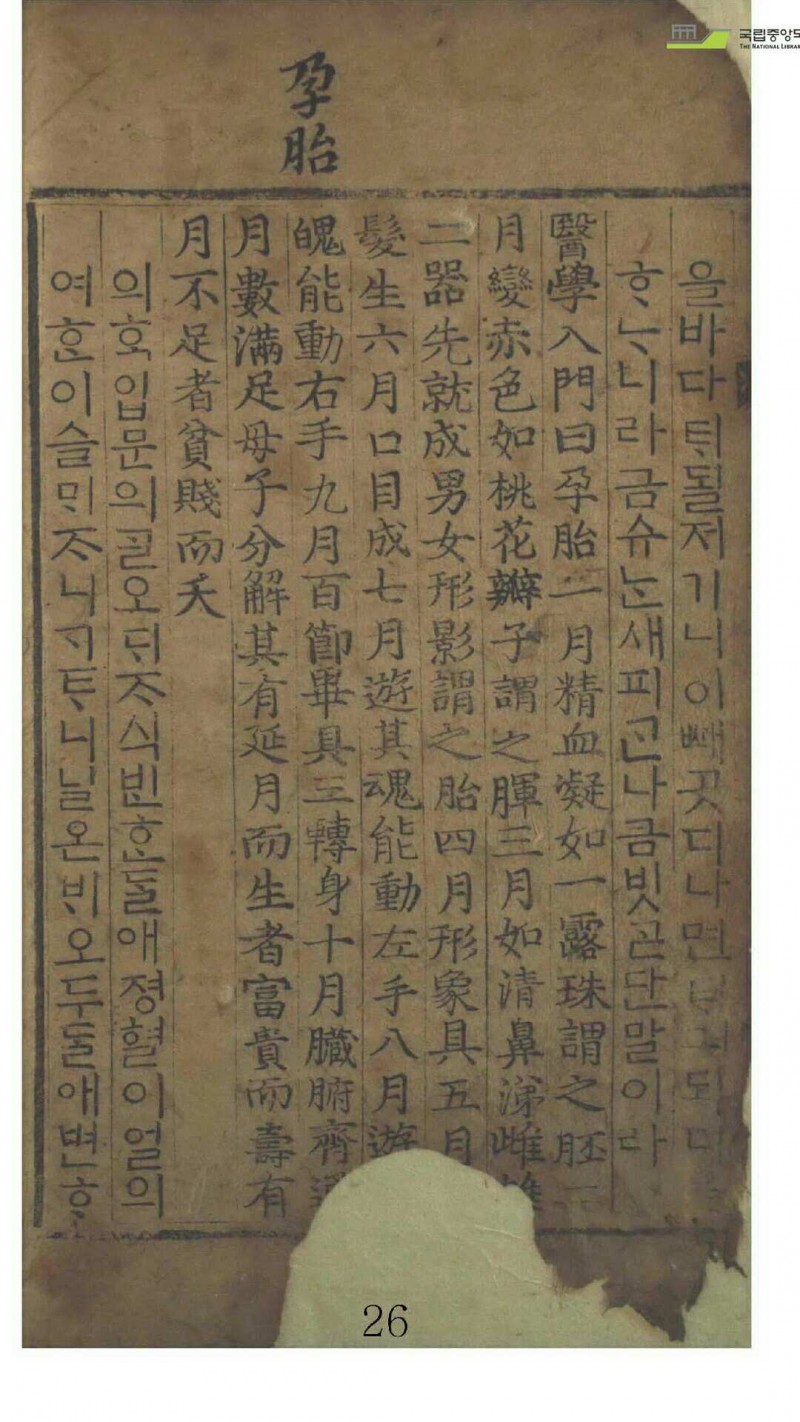 국립중앙도
THE NATIONAL LIBRA
孕胎
을바다ᄐᆡ될저기니이ᄣᅢ곳디나면
ᄒᆞᄂᆞ니라금슈ᄂᆞᆫ새피ᄀᆞᆮ나금빗ᄀᆞᆮ단말이라
醫學入門曰孕胎一月精血凝如一露珠謂之胚二
月變赤色如桃花瓣子謂之腪三月如清鼻涕雌雄
二器先就成男女形影謂之胎四月形象具五月
髮生六月口目成七月遊其魂能動左手八月遊
魄能動右手九月百節畢具三轉身十月臟腑齊通
月數滿足母子分解其有延月而生者富貴而壽有
月不足者貧賤而夭
의ᄒᆞᆨ입문의ᄀᆞᆯ오ᄃᆡᄌᆞ식ᄇᆡᆫᄒᆞᆫᄃᆞᆯ애졍혈이얼의
여ᄒᆞᆫ이슬ᄆᆡᄌᆞ니ᄀᆞᄐᆞ니닐온ᄇᆡ오두ᄃᆞᆯ애변ᄒᆞ
26